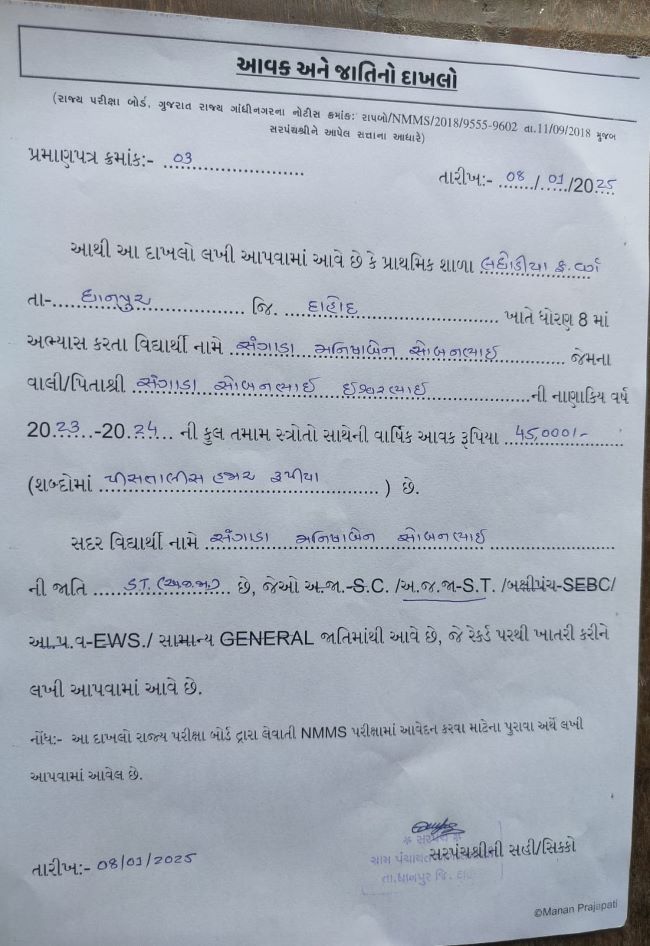 આવક અને જાતિનો દાખલો
(રાજ્ય પરીક્ષા બોર્ડ, ગુજરાત રાજ્ય ગાંધીનગરના નોટીસ ક્રમાંક: રાપબો/NMMS/2018/9555-9602 તા.11/09/2018 મુજબ
સરપંચશ્રીને આપેલ સત્તાના આધારે)
પ્રમાણપત્ર ક્રમાંક:- 03
તારીખ:- 08/01/2025
આથી આ દાખલો લખી આપવામાં આવે છે કે પ્રાથમિક શાળા
તા-ધાનપુર જિ. દાહોદ ખાતે ધોરણ 8 માં
અભ્યાસ કરતા વિદ્યાર્થી નામે સંગાડા મનિષાબેન સોબનભાઈ જેમના
વાલી/પિતાશ્રી સંગાડા સોબનભાઈ ઈશ્વરભાઈ ની નાણાકિય વર્ષ
2023-2024 ની કુલ તમામ સ્ત્રોતો સાથેની વાર્ષિક આવક રૂપિયા 45,000/-
(શબ્દોમાં પીસતાલીસ હજાર રૂપીયા) છે.
સદર વિદ્યાર્થી નામે સંગાડા મનિષાબેન સોબનભાઈ
ની જાતિ S.T. (અ.જ.જા.) છે, જેઓ અ.જા.-S.C. /અ.જ.જા-S.T. /બક્ષીપંચ-SEBC/
આ.પ.વ-EWS./ સામાન્ય GENERAL જાતિમાંથી આવે છે, જે રેકર્ડ પરથી ખાતરી કરીને
લખી આપવામાં આવે છે.
નોંધ:- આ દાખલો રાજ્ય પરીક્ષા બોર્ડ દ્રારા લેવાતી NMMS પરીક્ષામાં આવેદન કરવા માટેના પુરાવા અર્થે લખી
આપવામાં આવેલ છે.
તારીખ:- 08/01/2025
સરપંચ
સરપંચશ્રીની સહી/સિક્કો
ગ્રામ પંચાયત
તા.ધાનપુર જિ. દા
©Manan Prajapati